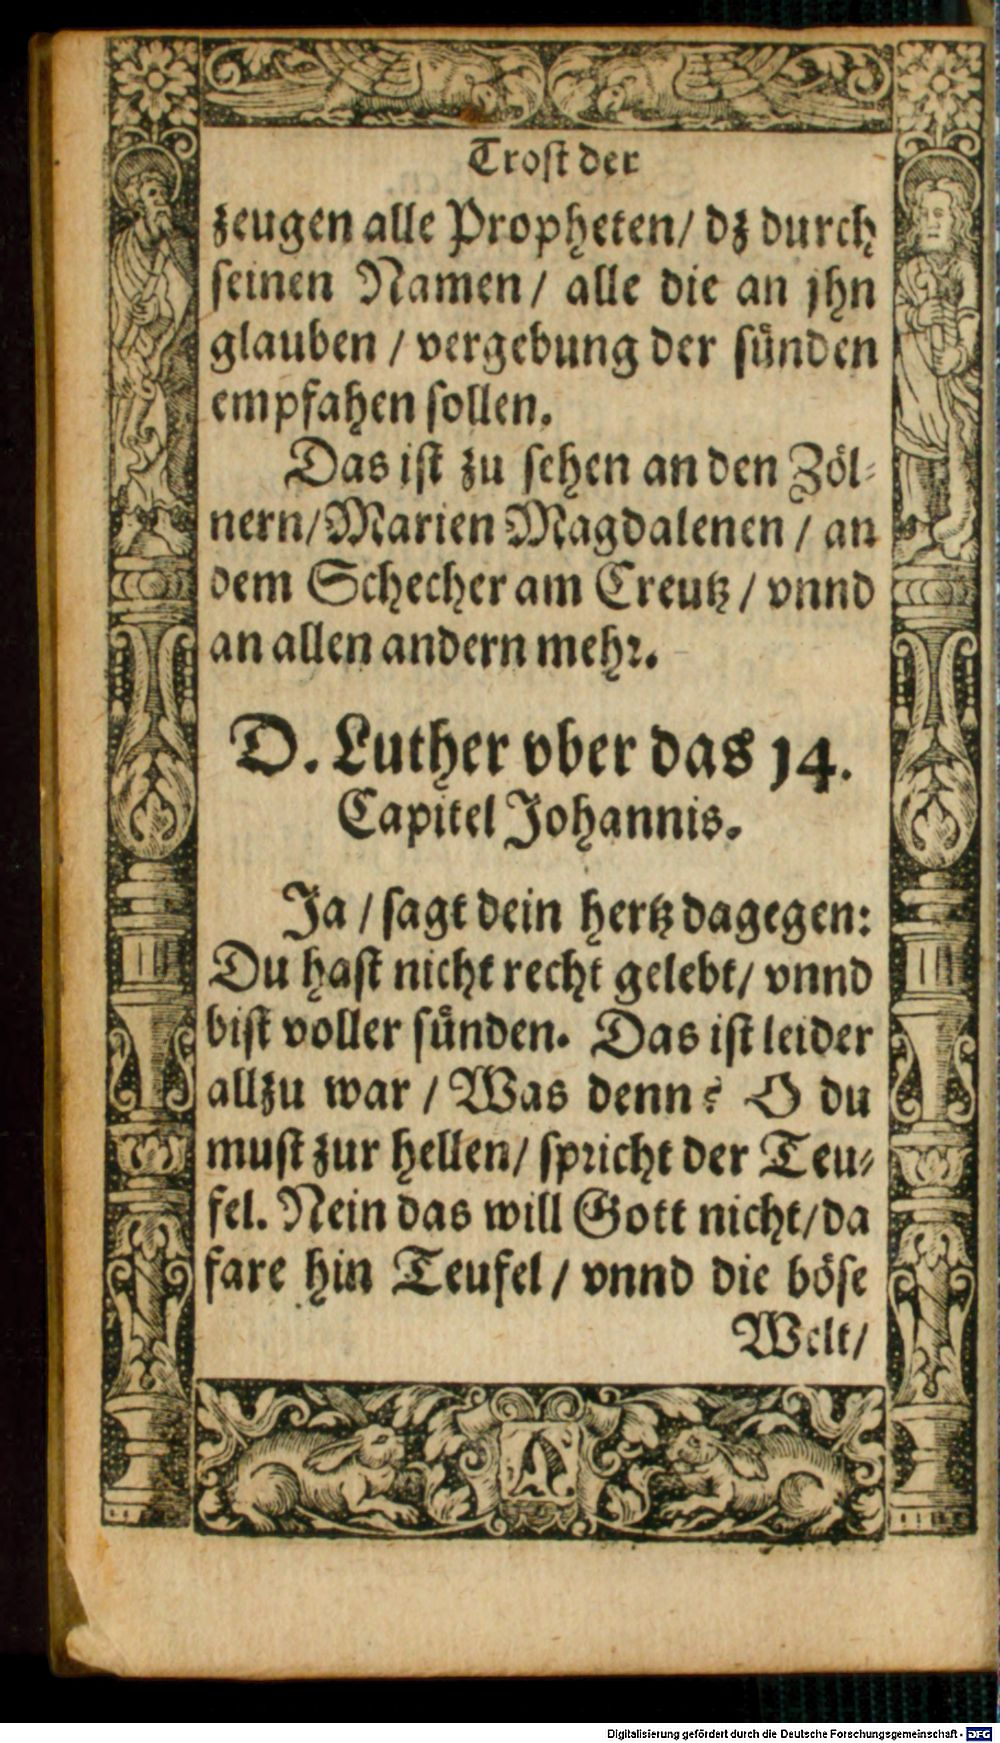 Trost der
zeugen alle Propheten/ dz durch
seinen Namen/ alle die an jhn
glauben / vergebung der sünden
empfahen sollen.
Das ist zu sehen an den Zöl-
nern/ Marien Magdalenen / an
dem Schecher am Creutz / vnnd
an allen andern mehr.
D. Luther vber das 14.
Capitel Johannis.
Ja / sagt dein hertz dagegen:
Du hast nicht recht gelebt/ vnnd
bist voller sünden. Das ist leider
allzu war / Was denn? O du
must zur hellen/ spricht der Teu-
fel. Nein das will Gott nicht/ da
fare hin Teufel / vnnd die böse
Welt/
Digitalisierung gefördert durch die Deutsche Forschungsgemeinschaft - DFG